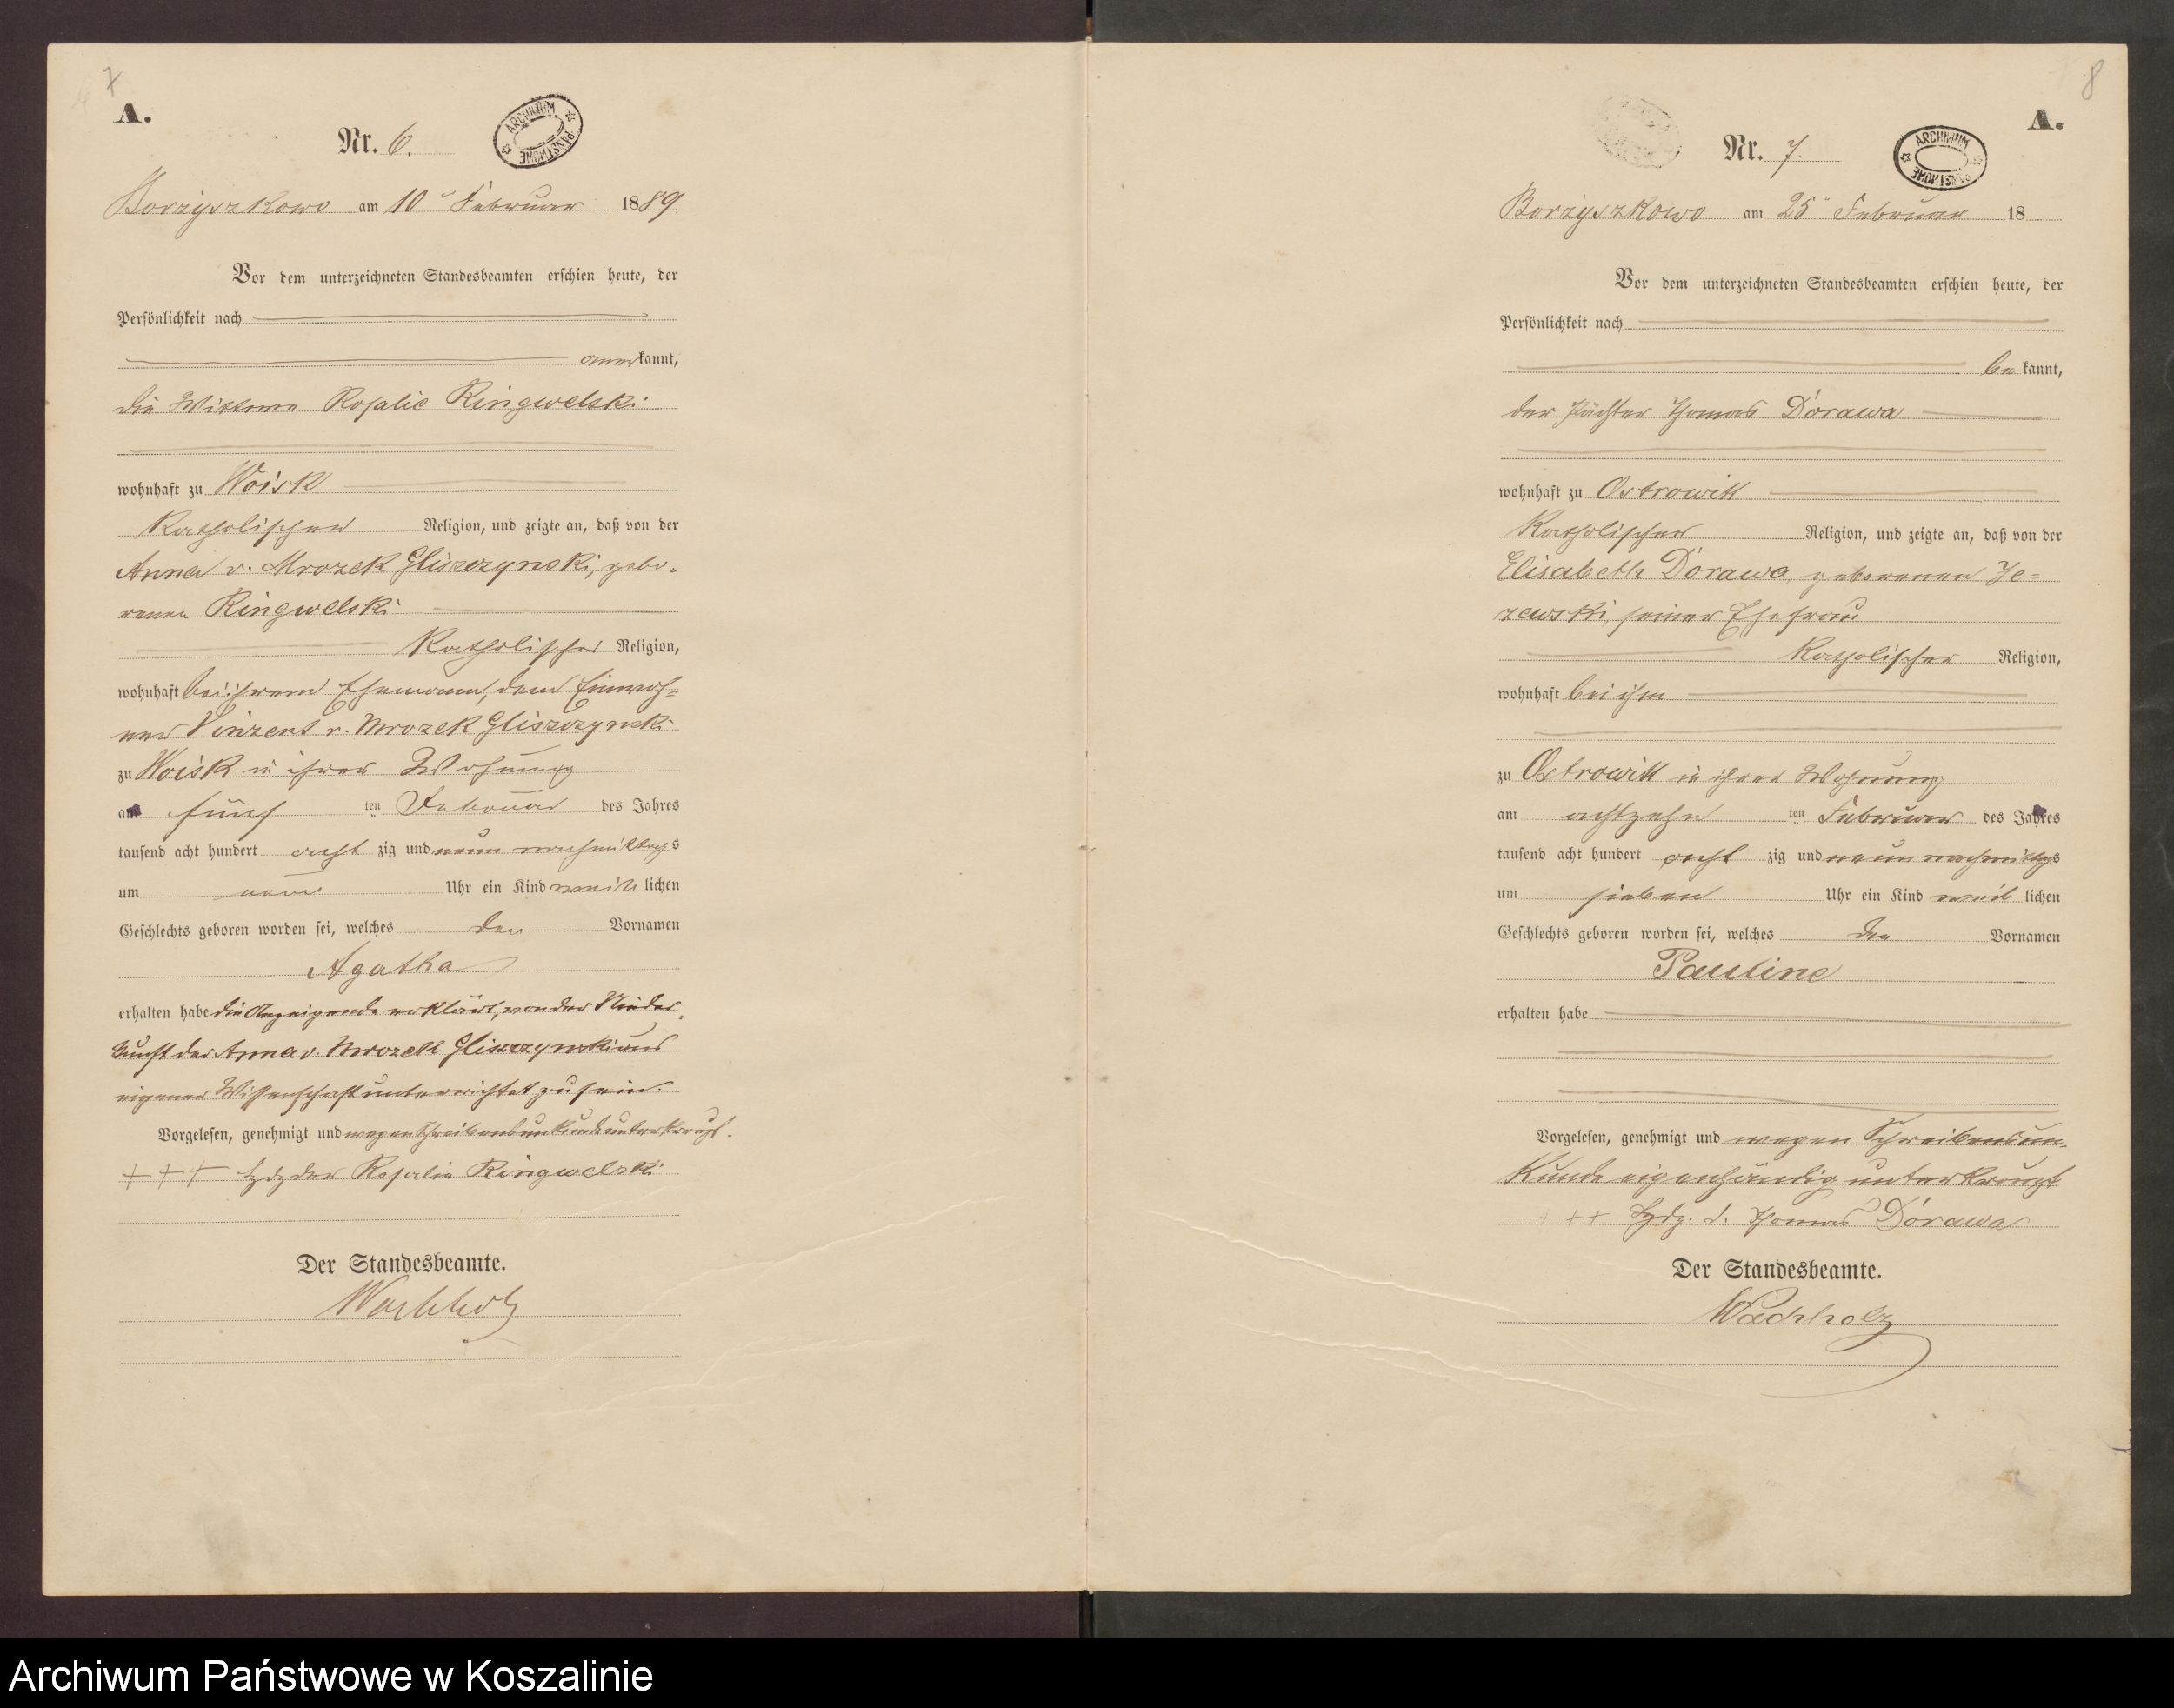 7
A.
Nr. 6.
ARCHIWUM PAŃSTWOWE
Borzyszkowo am 10ᵗ Februar 1889.
Vor dem unterzeichneten Standesbeamten erschien heute, der
Persönlichkeit nach
anerkannt,
die Wittwe Rosalie Ringwelski
wohnhaft zu Woisk
Katholischer Religion, und zeigte an, daß von der
Anna v. Mrozek Gliszczynski, gebo-
renen Ringwelski
Katholischer Religion,
wohnhaft bei ihrem Ehemann, dem Einwoh-
ner Vinzent v. Mrozek Gliszczynski
zu Woisk in ihrer Wohnung
am fünf ten Februar des Jahres
tausend acht hundert acht zig und neun nachmittags
um neun Uhr ein Kind weib lichen
Geschlechts geboren worden sei, welches den Vornamen
Agatha
erhalten habe die Anzeigende erklärt, von der Nieder-
kunft der Anna v. Mrozek Gliszczynski aus
eigener Wissenschaft unterrichtet zu sein.
Vorgelesen, genehmigt und wegen Schreibensunkunde unterkreuzt.
+++ Hdz der Rosalie Ringwelski
Der Standesbeamte.
Wachholz
8
A.
Nr. 7.
ARCHIWUM PAŃSTWOWE
Borzyszkowo am 25ᵗ Februar 18
Vor dem unterzeichneten Standesbeamten erschien heute, der
Persönlichkeit nach
be kannt,
der Pächter Thomas Dorawa
wohnhaft zu Ostrowitt
Katholischer Religion, und zeigte an, daß von der
Elisabeth Dorawa, geborenen Je=
zewski, seiner Ehefrau
Katholischer Religion,
wohnhaft bei ihm
zu Ostrowitt in ihrer Wohnung
am achtzehn ten Februar des Jahres
tausend acht hundert acht zig und neun nachmittags
um sieben Uhr ein Kind weib lichen
Geschlechts geboren worden sei, welches den Vornamen
Pauline
erhalten habe
Vorgelesen, genehmigt und wegen Schreibensun-
kunde eigenhändig unterkreuzt
+++ Hdz. d. Thomas Dorawa
Der Standesbeamte.
Wachholz
Archiwum Państwowe w Koszalinie